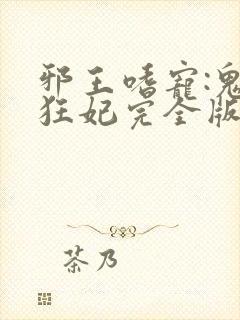 邪王嗜寵:鬼
狂妃完全版
茶乃